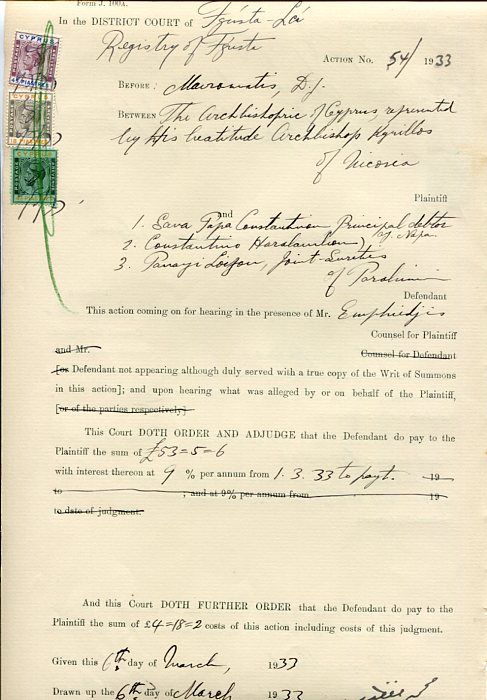 Form J. 100A.
In the DISTRICT COURT of F'gusta-L'ca
Registry of F'gusta
ACTION NO. 54/ 1933
BEFORE: Mavromatis, D.J.
BETWEEN The Archbishopric of Cyprus represented
by His Beatitude Archbishop Kyrillos
of Nicosia
Plaintiff
and
1. Sava Papa Constantinou Principal debtor
of N. Apa.
2. Constantino Haralambou)
3. Panayi Loizou, Joint-Sureties
of Paralimni
Defendant
This action coming on for hearing in the presence of Mr. Emphiedjis
Counsel for Plaintiff
and Mr.
Counsel for Defendant
[or Defendant not appearing although duly served with a true copy of the Writ of Summons
in this action]; and upon hearing what was alleged by or on behalf of the Plaintiff,
[or of the parties respectively]
This Court DOTH ORDER AND ADJUDGE that the Defendant do pay to the
Plaintiff the sum of £53=5=6
with interest thereon at 9 % per annum from 1. 3. 33 to payt. 19
to , and at 9% per annum from 19
to date of judgment.
And this Court DOTH FURTHER ORDER that the Defendant do pay to the
Plaintiff the sum of £4=18=2 costs of this action including costs of this judgment.
Given this 6th day of March, 1933
Drawn up the 6th day of March 1933
CYPRUS
4½ PIASTRES
CYPRUS
CYPRUS